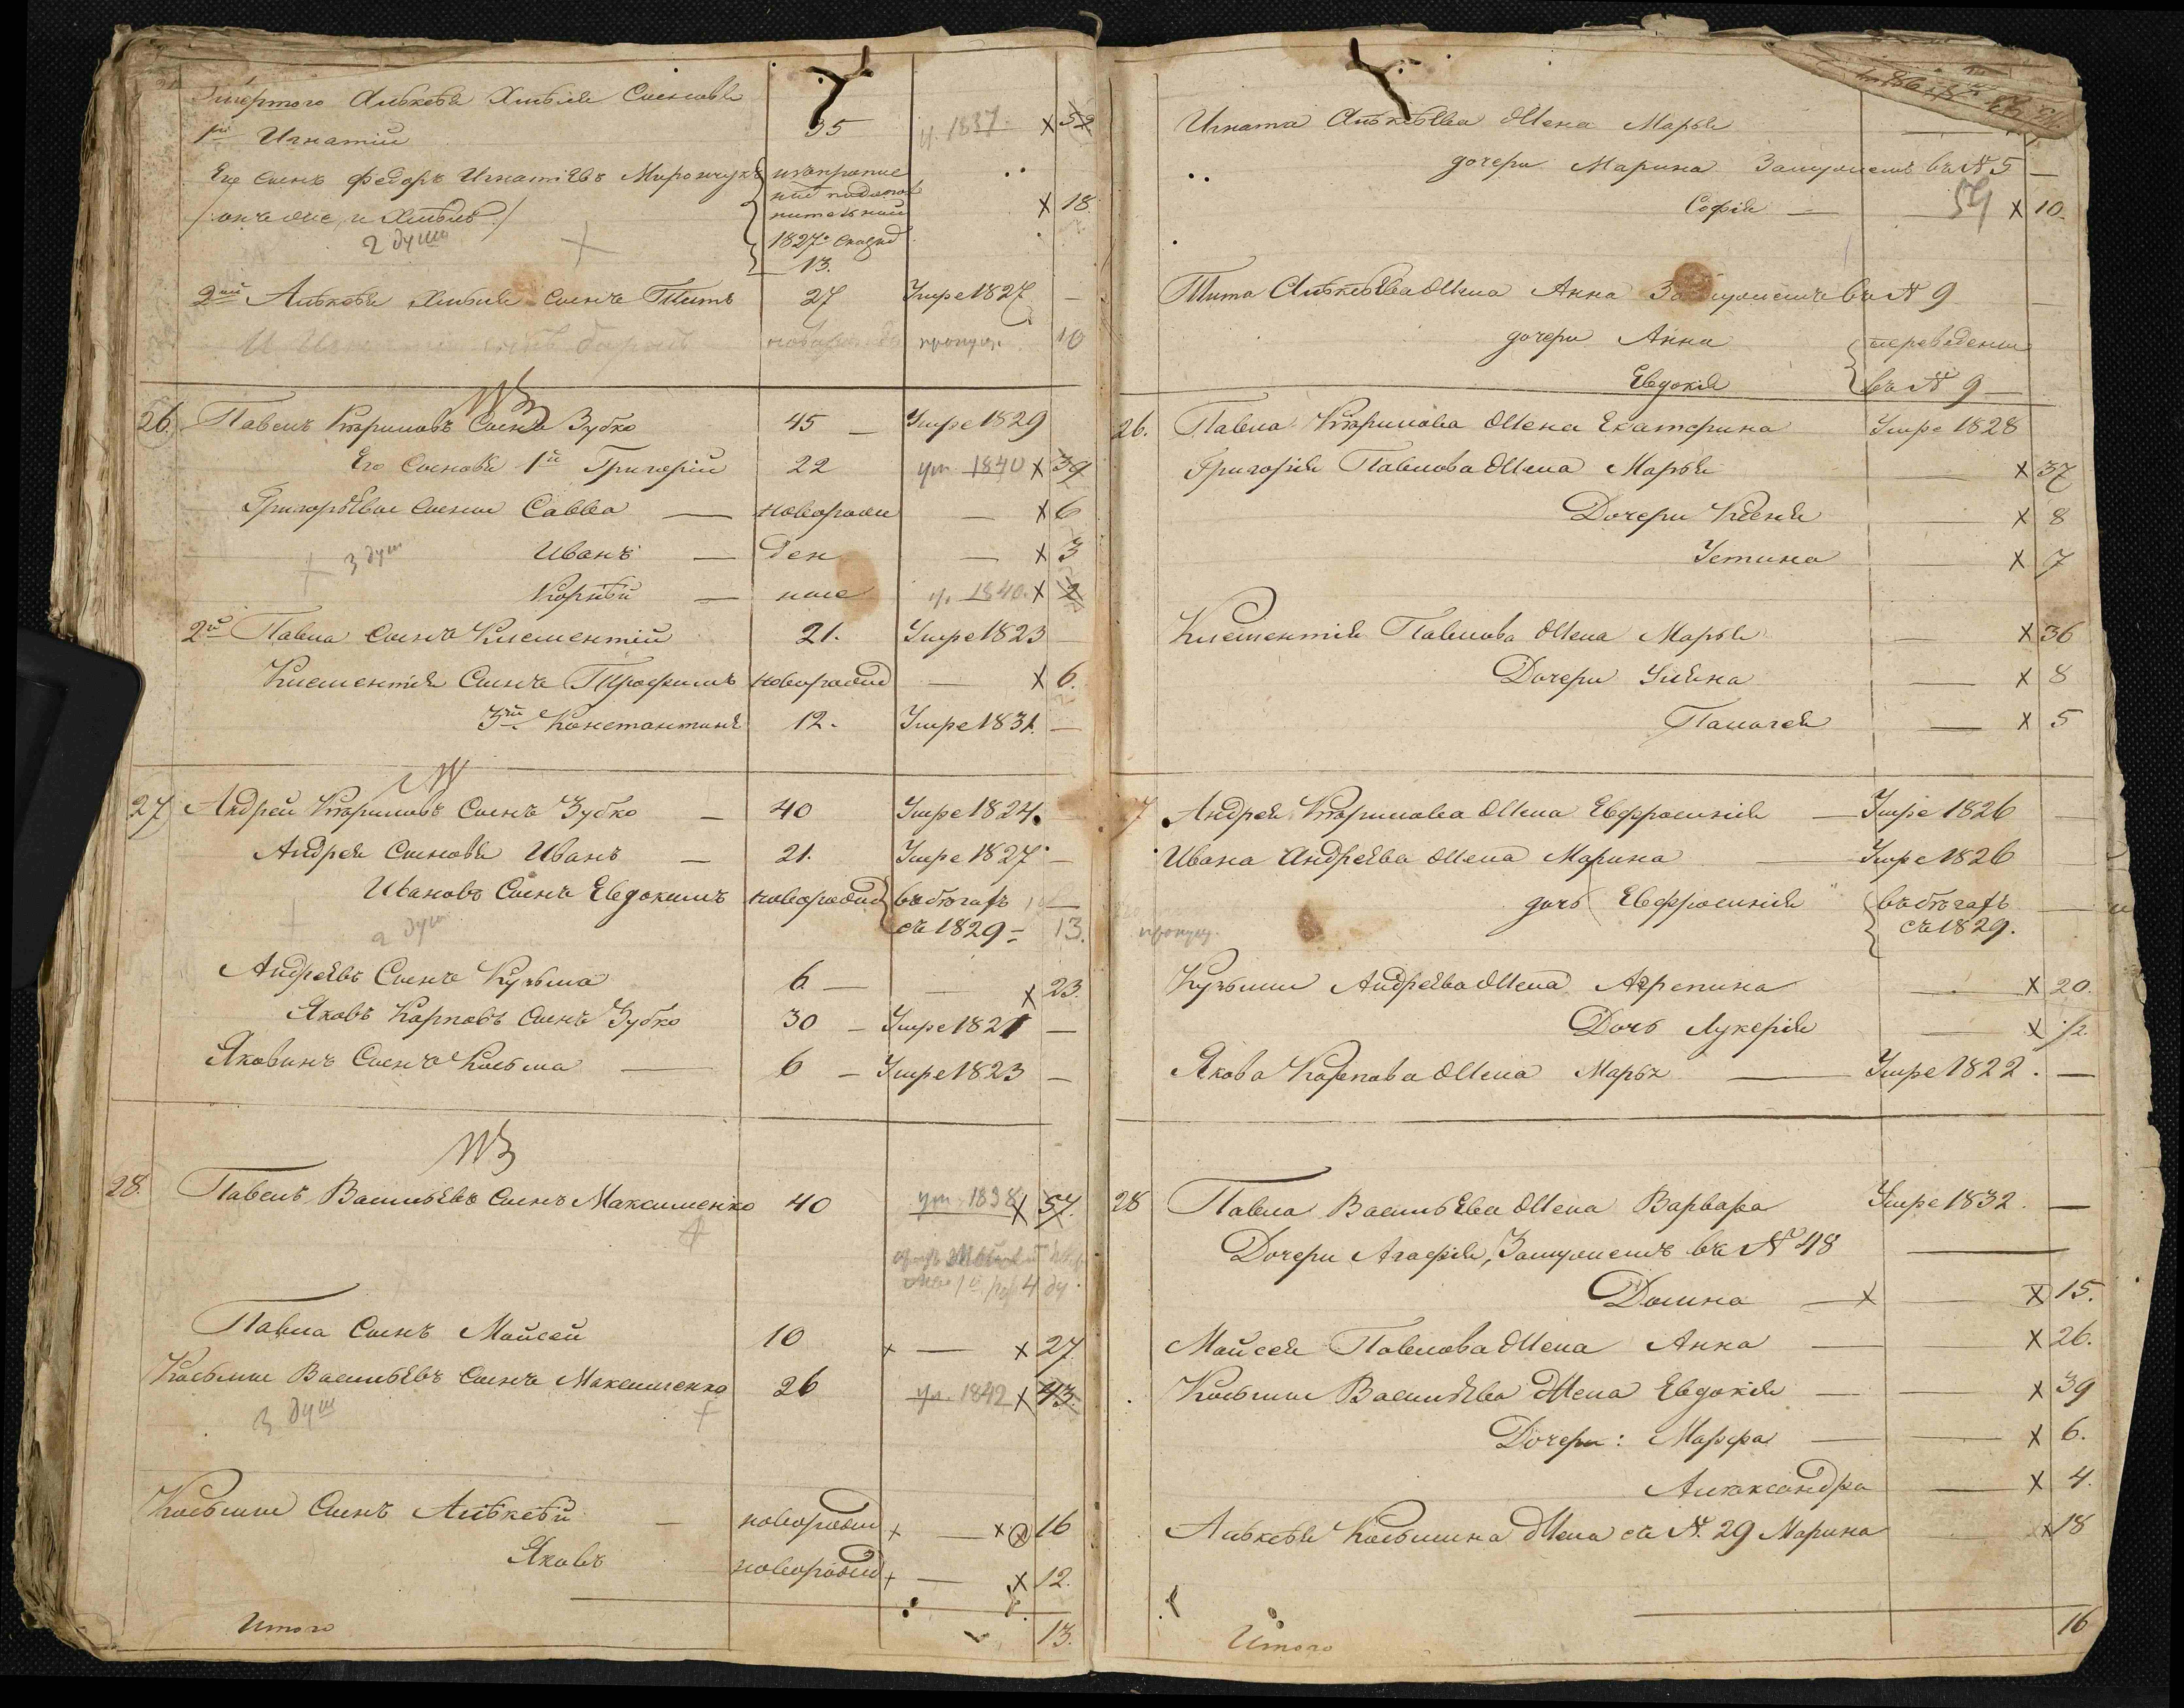 Умертого Алѣксѣя Хмѣля Сыновья
1й Игнатій 35 у. 1837 х 52
Его сынъ Федоръ Игнатіевъ Мирончукъ
/ онъ же, и Хмѣль /
1827 х 18
13.
2 душ
2ий Алѣксѣя Хмѣля сынъ Титъ 27 Умре 1827 —
пропущ. 10
26. Павелъ Сынъ Зубко 45 — Умре 1829
Его Сыновья 1й Григорій 22 ум. 1840 х 39
Григорьевы Сыны Савва — новорож — х 6
3 душ Иванъ — ден — х 3
Корнѣй — ные у. 1840. х 2
2й Павла Сынъ Климентій 21. Умре 1823 —
Климентія Сынъ Трофимъ новорожд — х 6.
3й Константинъ 12. Умре 1831. —
27 Андрей Сынъ Зубко — 40 Умре 1824. —
Андрея Сыновья Иванъ — 21. Умре 1827 —
Ивановъ Сынъ Евдокимъ новорожд въ бѣгахъ —
2 душ съ 1829 — 13.
Андреевъ Сынъ Кузьма 6 — — х 23.
Яковъ Карповъ Сынъ Зубко 30 — Умре 1821 —
Яковинъ Сынъ Козьма — 6 — Умре 1823 —
28. Павелъ Васильевъ Сынъ Максименко 40 ум. 1838 х 57.
Павла Сынъ Мойсей 10 х — х 27
Козьма Васильевъ Сынъ Максименко 26 ум. 1842 х 43.
3 душ
Козьмы Сынъ Алѣксѣй — новорожд х — х 16
Яковъ новорожд х — х 12.
Итого 13.
Игната Алѣксѣева Жена Марья —
дочери Марина Замужемъ въ № 5 —
Софія — 54 х 10
Тита Алѣксѣева Жена Анна Замужемъ въ № 9 —
дочери Анна переведены
Евдокія въ № 9 —
26. Павла Жена Екатерина Умре 1828
Григорія Павлова Жена Марья — х 37
Дочери Ксенія — х 8
Устина — х 7
Климентія Павлова Жена Марья — х 36
Дочери Уліяна — х 8
Палагея — х 5
7 Андрея Жена Евфросинія — Умре 1826 —
Ивана Андреева Жена Марина — Умре 1826
дочь Евфросинія въ бѣгахъ —
пропущ. съ 1829.
Кузьмы Андреева Жена Агрепина — х 20.
Дочь Лукерія — х 1/2
Якова Карпова Жена Марья — Умре 1822. —
28 Павла Васильева Жена Варвара Умре 1832. —
Дочери Агафія, Замужемъ въ № 48 —
Домна — х — х 15.
Мойсея Павлова Жена Анна — х 26.
Козьмы Васильева Жена Евдокія — х 39
Дочери: Марфа — х 6.
Алѣксандра — х 4.
Алѣксѣя Козьмина Жена съ №. 29 Марина х 18
Итого 16